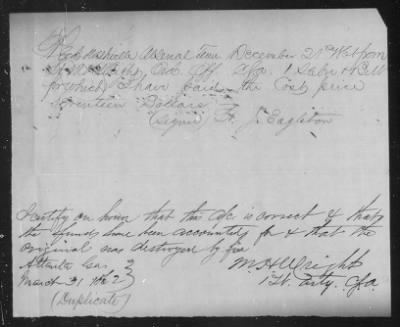 Recd Nashville Arsenal Tenn December 21st 1861 from
Ord. Off. C.S.A. 1 Sabre & Belt
for which I have paid the Cost price
Seventeen Dollars
(Signed) F. J. Eagleton
I certify on honor that this a/c is correct & that
the funds have been accounted for & that the
original was destroyed by fire
Atlanta Ga.
March 31 1862
M. H. Wright
1 Lt. Arty. C.S.A.
(Duplicate)